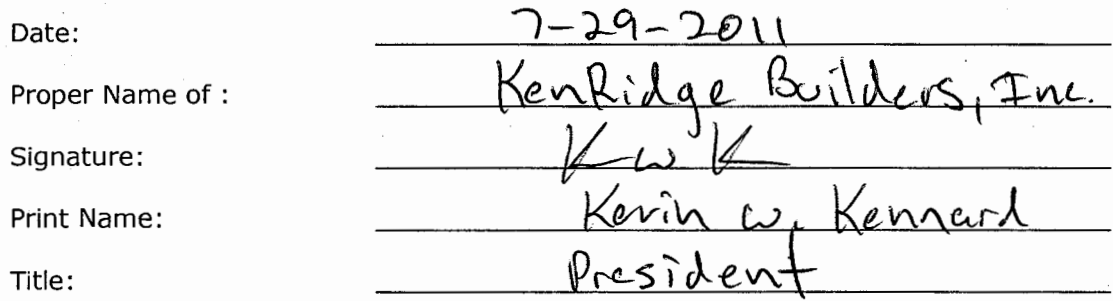 Date: 7-29-2011
Proper Name of : KenRidge Builders, Inc.
Signature: KwK
Print Name: Kevin W. Kennard
Title: President